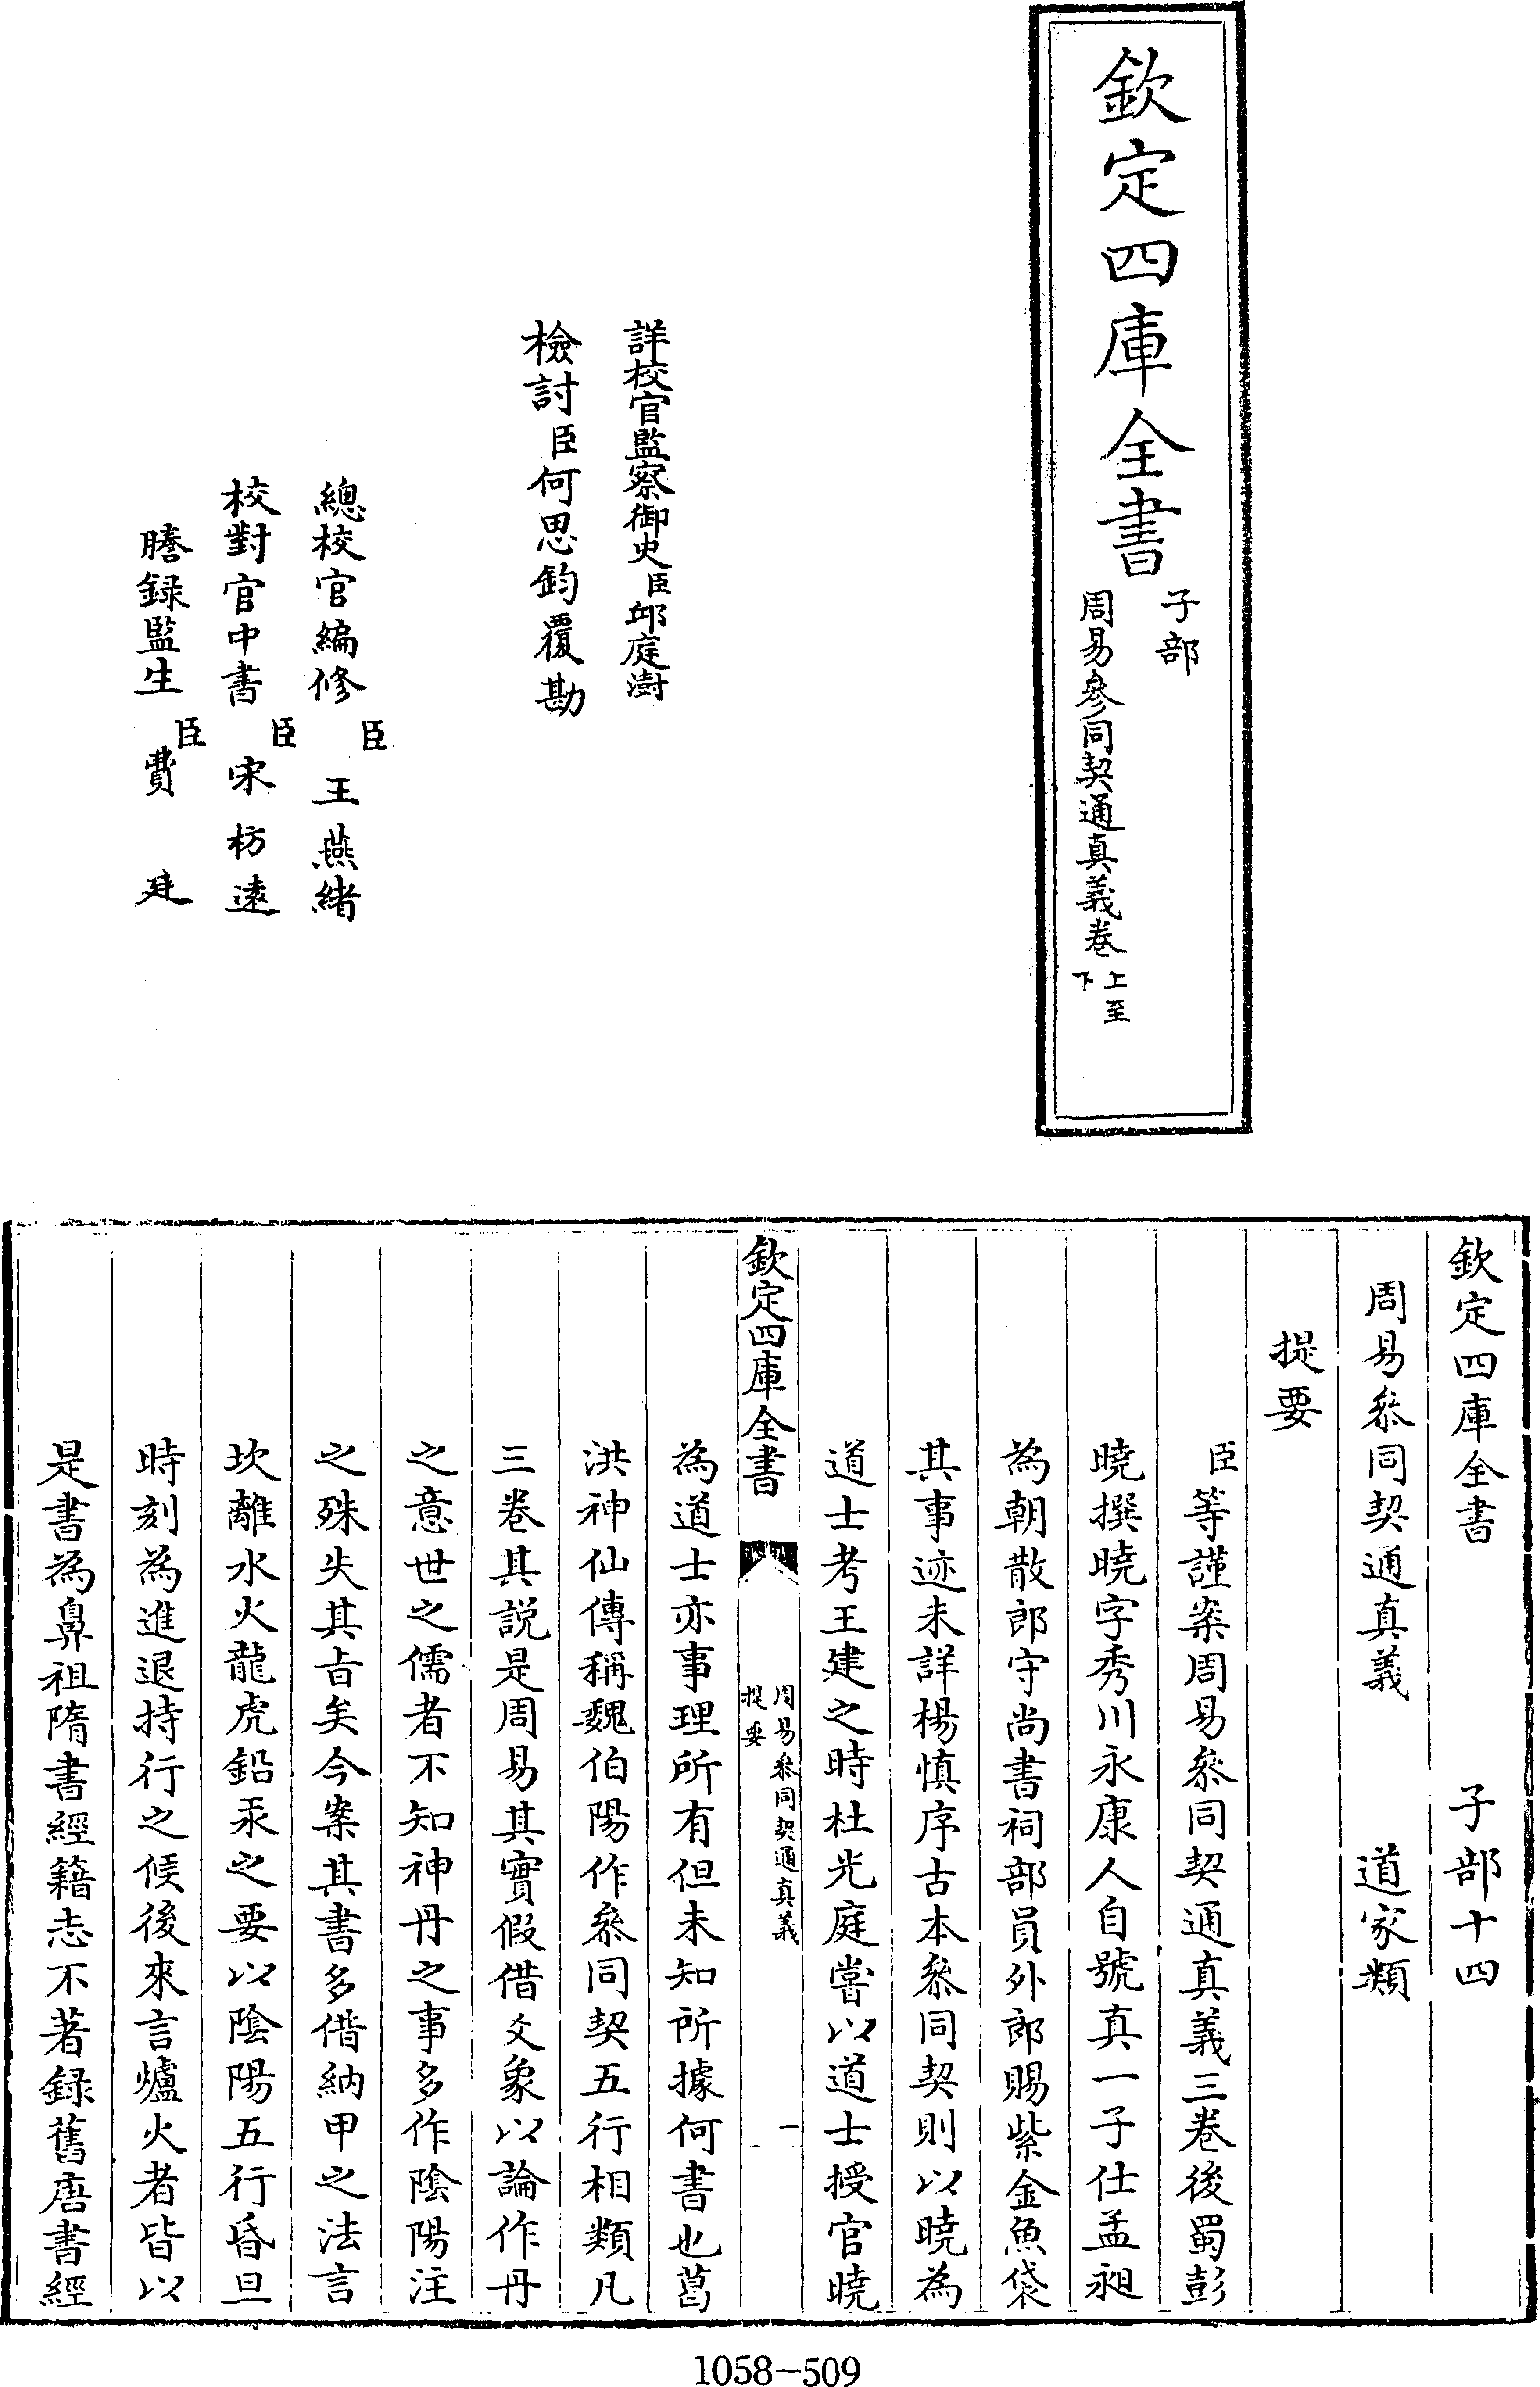 欽定四庫全書
子部
周易參同契通真義卷上至下
詳校官監察御史臣邱庭澍
檢討臣何思鈞覆勘
總校官編修臣王燕緒
校對官中書臣宋枋遠
謄録監生臣費廷
欽定四庫全書　子部十四
周易叅同契通真義　道家類
提要
臣等謹案周易叅同契通真義三巻後蜀彭
曉撰曉字秀川永康人自號真一子仕孟昶
為朝散郎守尚書祠部員外郎賜紫金魚袋
其事迹未詳楊慎序古本叅同契則以曉為
道士考王建之時杜光庭嘗以道士授官曉
欽定四庫全書
周易叅同契通真義
提要
一
為道士亦事理所有但未知所據何書也葛
洪神仙傳稱魏伯陽作叅同契五行相類凡
三巻其説是周易其實假借爻象以論作丹
之意世之儒者不知神丹之事多作陰陽注
之殊失其㫖矣今案其書多借納甲之法言
坎離水火龍虎鉛汞之要以陰陽五行昏旦
時刻為進退持行之候後來言爐火者皆以
是書為鼻祖隋書經籍志不著録舊唐書經
1058-509